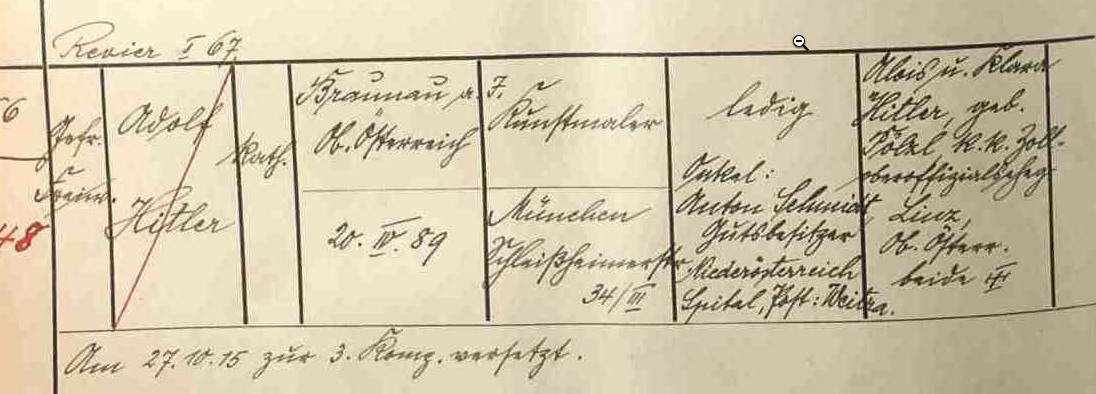 Revier I 67.
6
48
Gefr.
Freiw.
Adolf
Hitler
Kath.
Braunau a. I.
Ob. Österreich
20. IV. 89
Kunstmaler
München
Schleißheimerstr
34/III
ledig
Onkel:
Anton Schmidt,
Gutsbesitzer
Niederösterreich
Spital, Post: Weitra.
Alois u. Klara
Hitler, geb.
Pölzl k.k. Zoll-
oberoffizialseheg.
Linz,
Ob. Österr.
beide
Am 27.10.15 zur 3. Komp. versetzt.